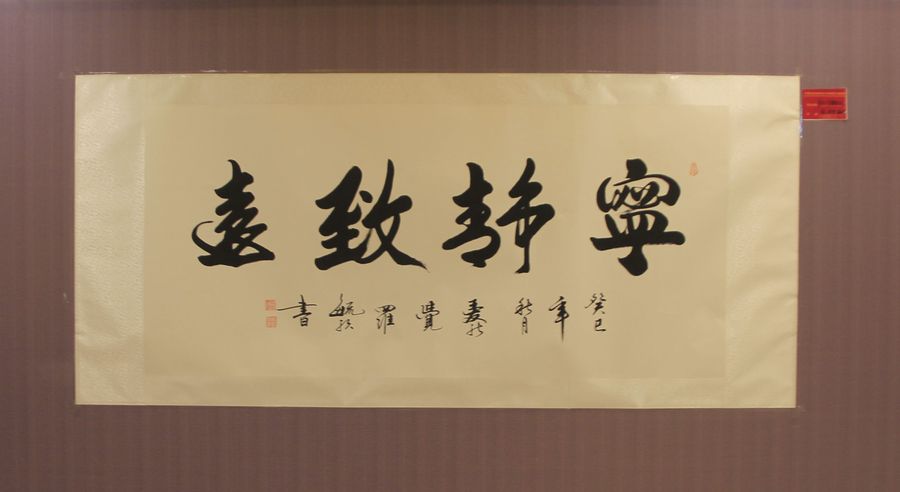 寧靜致遠
癸巳年秋月愛新覺羅毓峋書